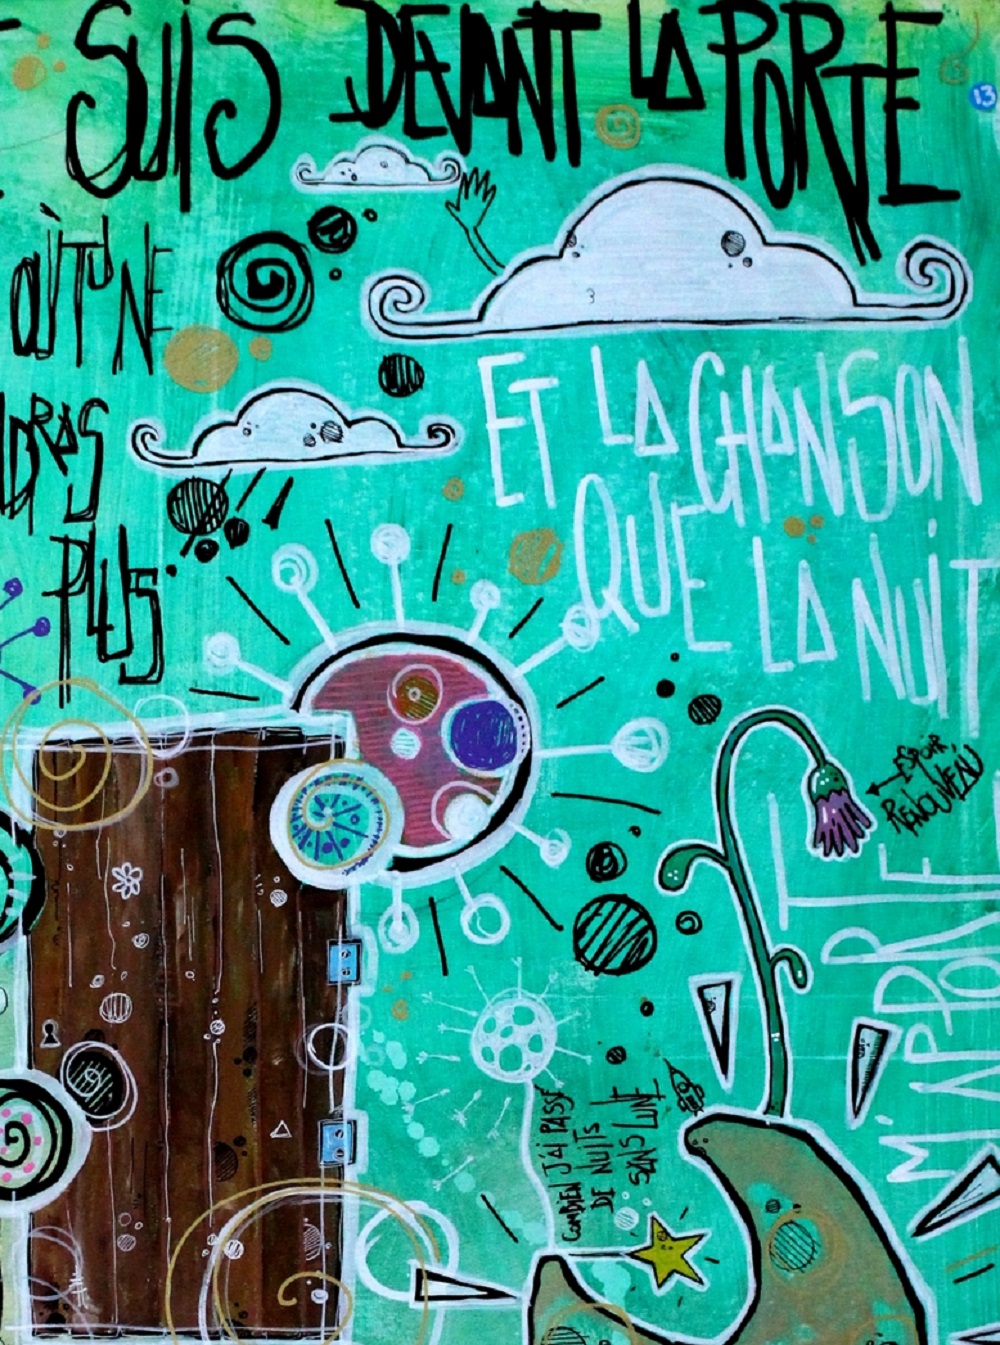 SUIS DEVANT LA PORTE
OÙ TU NE
DRAS
PLUS
13
ET LA CHANSON
QUE LA NUIT
T
M'APPORTE
ESPOIR
RENOUVEAU
COMBIEN J'AI PASSÉ
DE NUITS
SANS LUNE